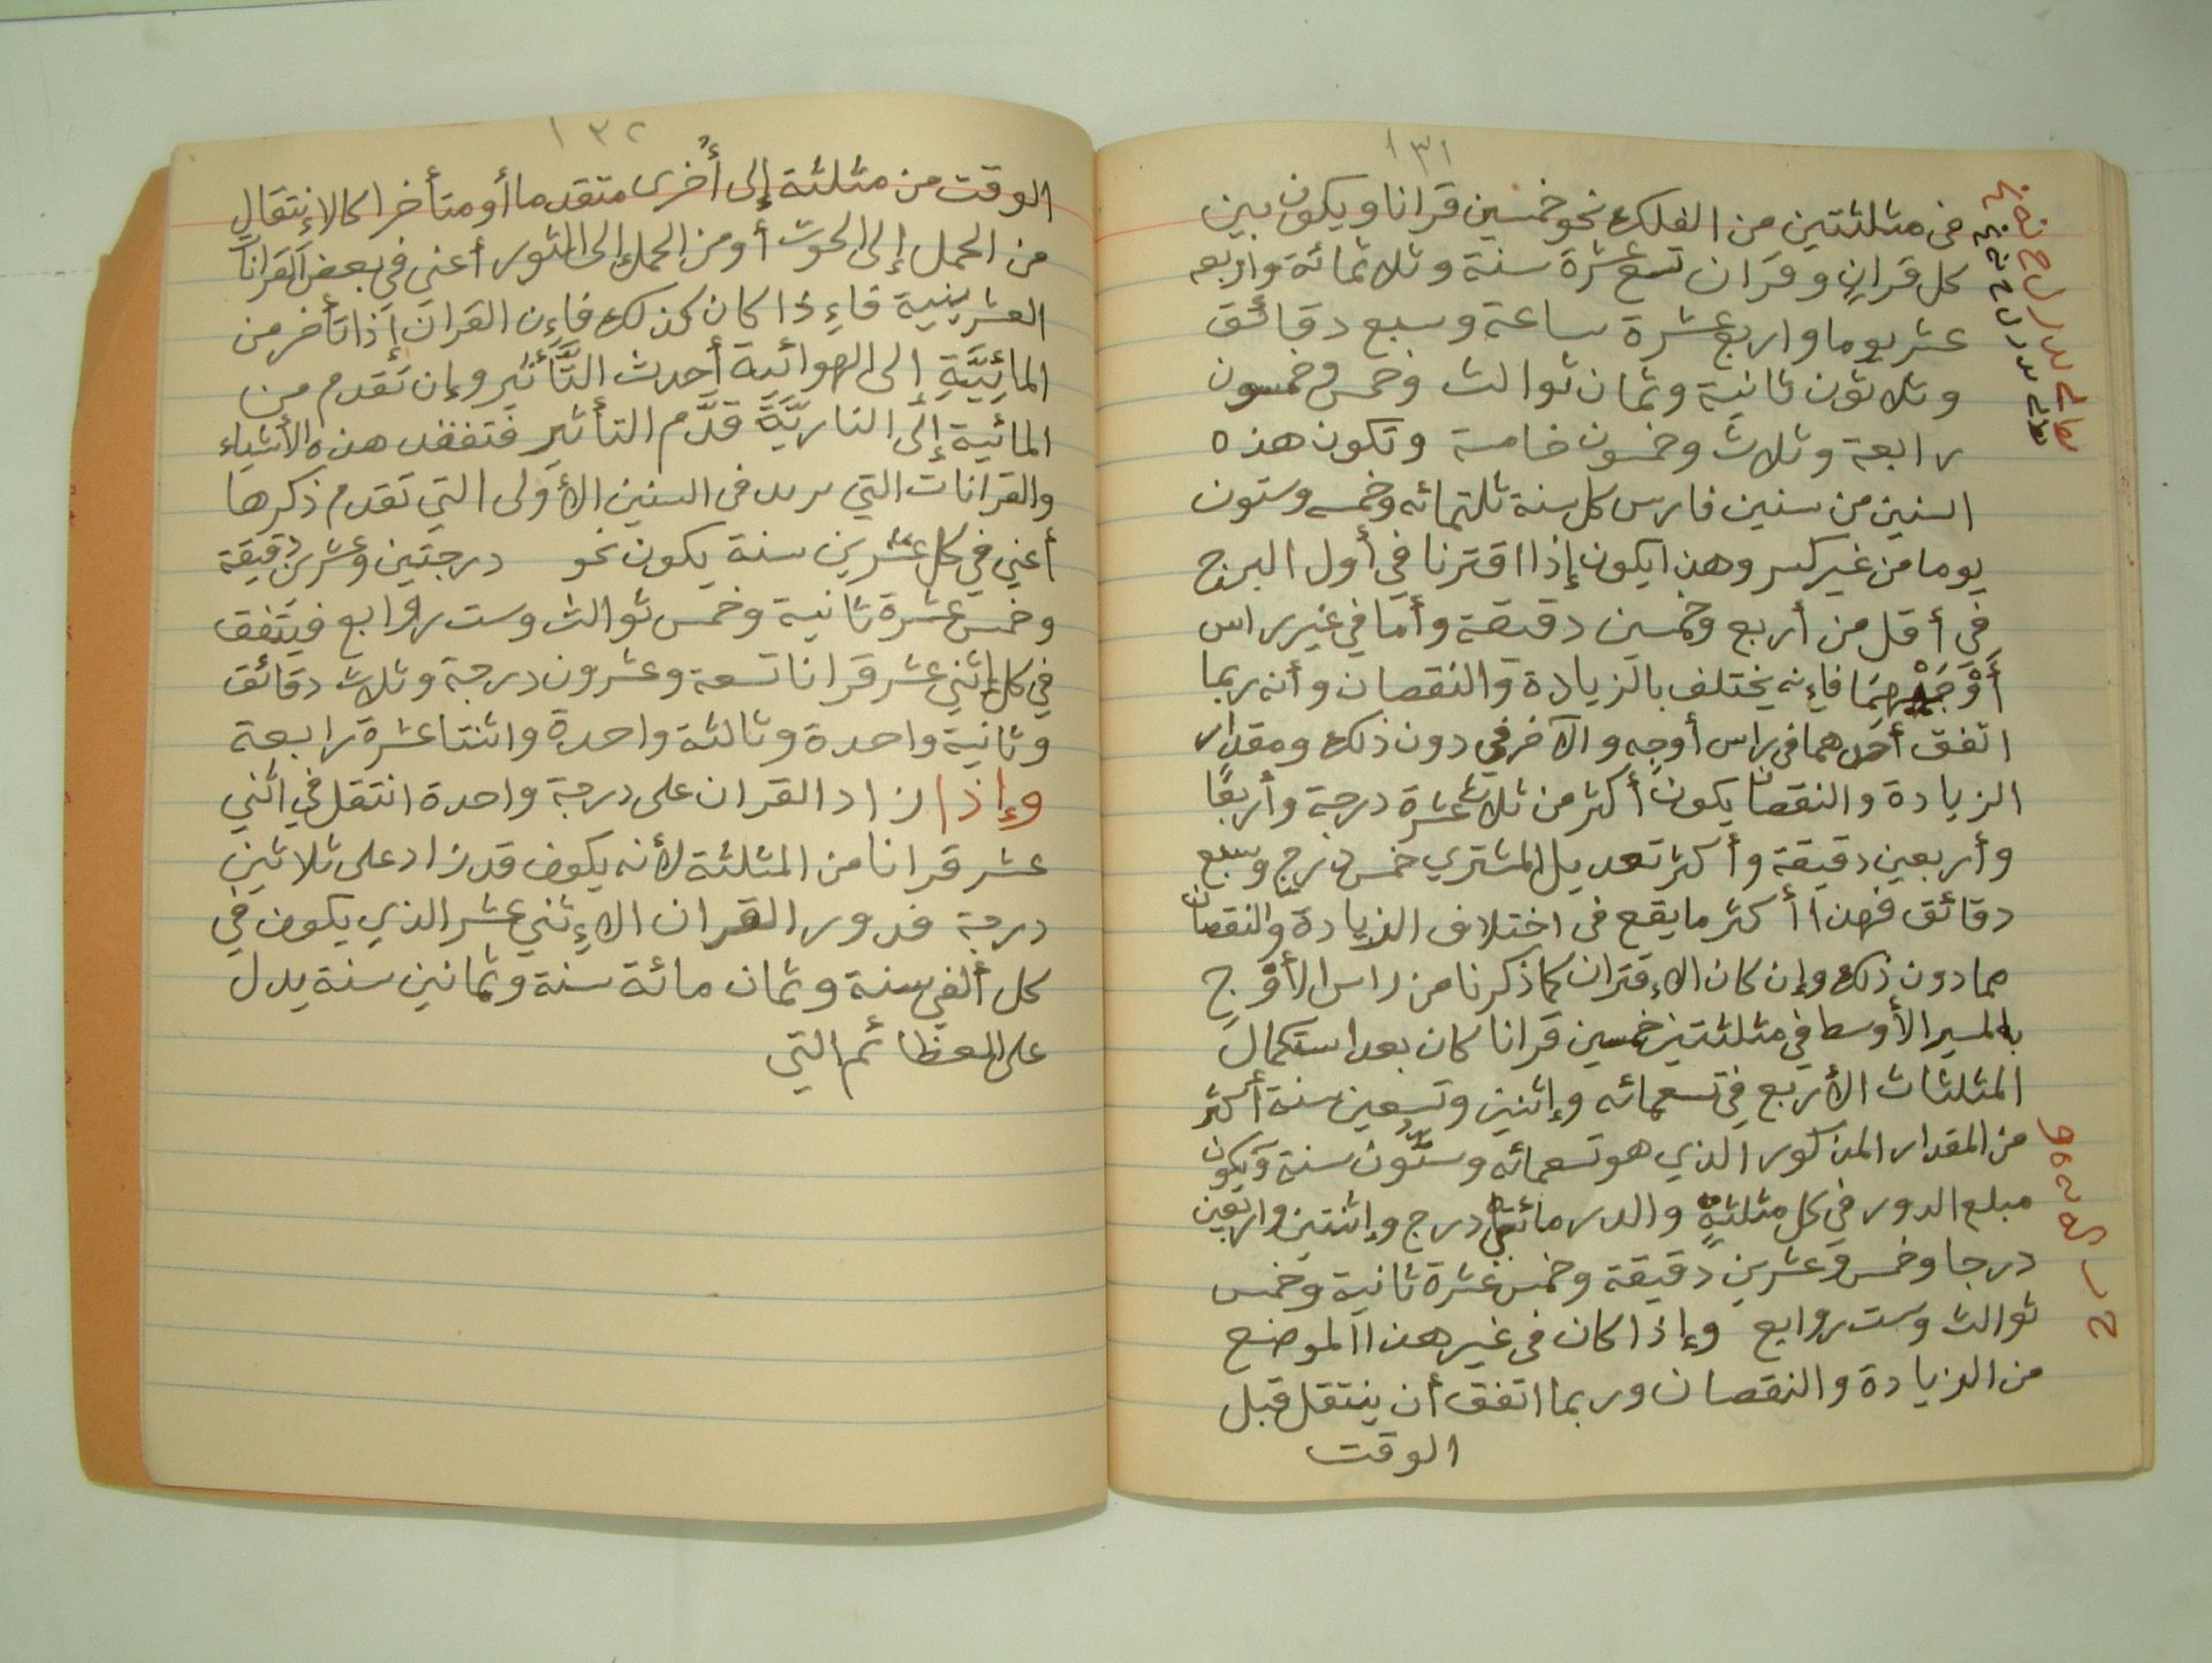 ١٣١
فى مثلثتين من الفلك نحو خمسين قرانا ويكون بين
كل قران وقران تسع عشرة سنة وثلاثمائة واربعه
عشر يوما واربع عشرة ساعة وسبع دقائق
وثلاثون ثانية وثمان ثوالث وخمس وخمسون
رابعة وثلاث وخمسون خامسة وتكون هذه
السنين من سنين فارس كل سنة ثلثمائه وخمسه وستون
يوما من غير كسر وهذا يكون إذا اقترنا في أول البرج
في أقل من أربع وخمسين دقيقة وأما في غير راس
أَوْجَيْهِمَا فإنه يختلف بالزيادة والنقصان وأنه ربما
اتفق أحدهما في راس أوجه والآخر في دون ذلك ومقدار
الزيادة والنقصان يكون أكثر من ثلاث عشرة درجة وأربعًا
وأربعين دقيقة وأكثر تعديل المشتري خمس درج وسبع
دقائق فهذا أكثر ما يقع فى اختلاف الزيادة والنقصان
مما دون ذلك وإن كان الإقتران كما ذكرنا من راس الأوْجِ
بالمسير الأوسط في مثلثتين خمسين قرانا كان بعد استكمال
المثلثات الأربع في تسعمائه وإثنين وتسعين سنة أكثر
من المقدار المذكور الذي هو تسعمائه وستُّون سنة ويكون
مبلع الدور في كل مثلثةٍ والدر مائتي درج وإثنتين واربعين
درجا وخمس وعشرين دقيقة وخمس عشرة ثانية وخمس
ثوالث وست روابع وإذا كان فى غير هذا الموضع
من الزيادة والنقصان وربما اتفق أن ينتقل قبل
الوقت
١٣٢
الوقت من مثلثة إلى أُخرى متقدما أو متأخرا كالإنتقال
من الحمل إلى الحوت أو من الحمل إلى الثور أعنى في بعض القرانات
العشرينية فإذا كان كذلك فإن القران إذا تأخر من
المائِيَّةِ إلى الهوائية أحدث التَّأثير وإن تقدم من
المائية إلى الناريَّة قدَّم التأثير فتفقد هذه الأشياء
والقرانات التي فى السنين الأولى التي تقدم ذكرها
أعني في كل عشرين سنة يكون نحو درجتين وعشرين دقيقة
وخمس عشرة ثانية وخمس ثوالث وست روابع فيتفق
في كل إثني عشر قرانا تسعة وعشرون درجة وثلاث دقائق
وثانية واحدة وثالثة واحدة واثنتا عشرة رابعة
وإذا زاد القران على درجة واحدة انتقل في اثني
عشر قرانا من المثلثة لأنه يكون قد زاد على ثلاثين
درجة فدور القران الإثني عشر الذي يكون في
كل ألفي سنة وثمان مائة سنة وثمانين سنة يدل
على العظائم التي